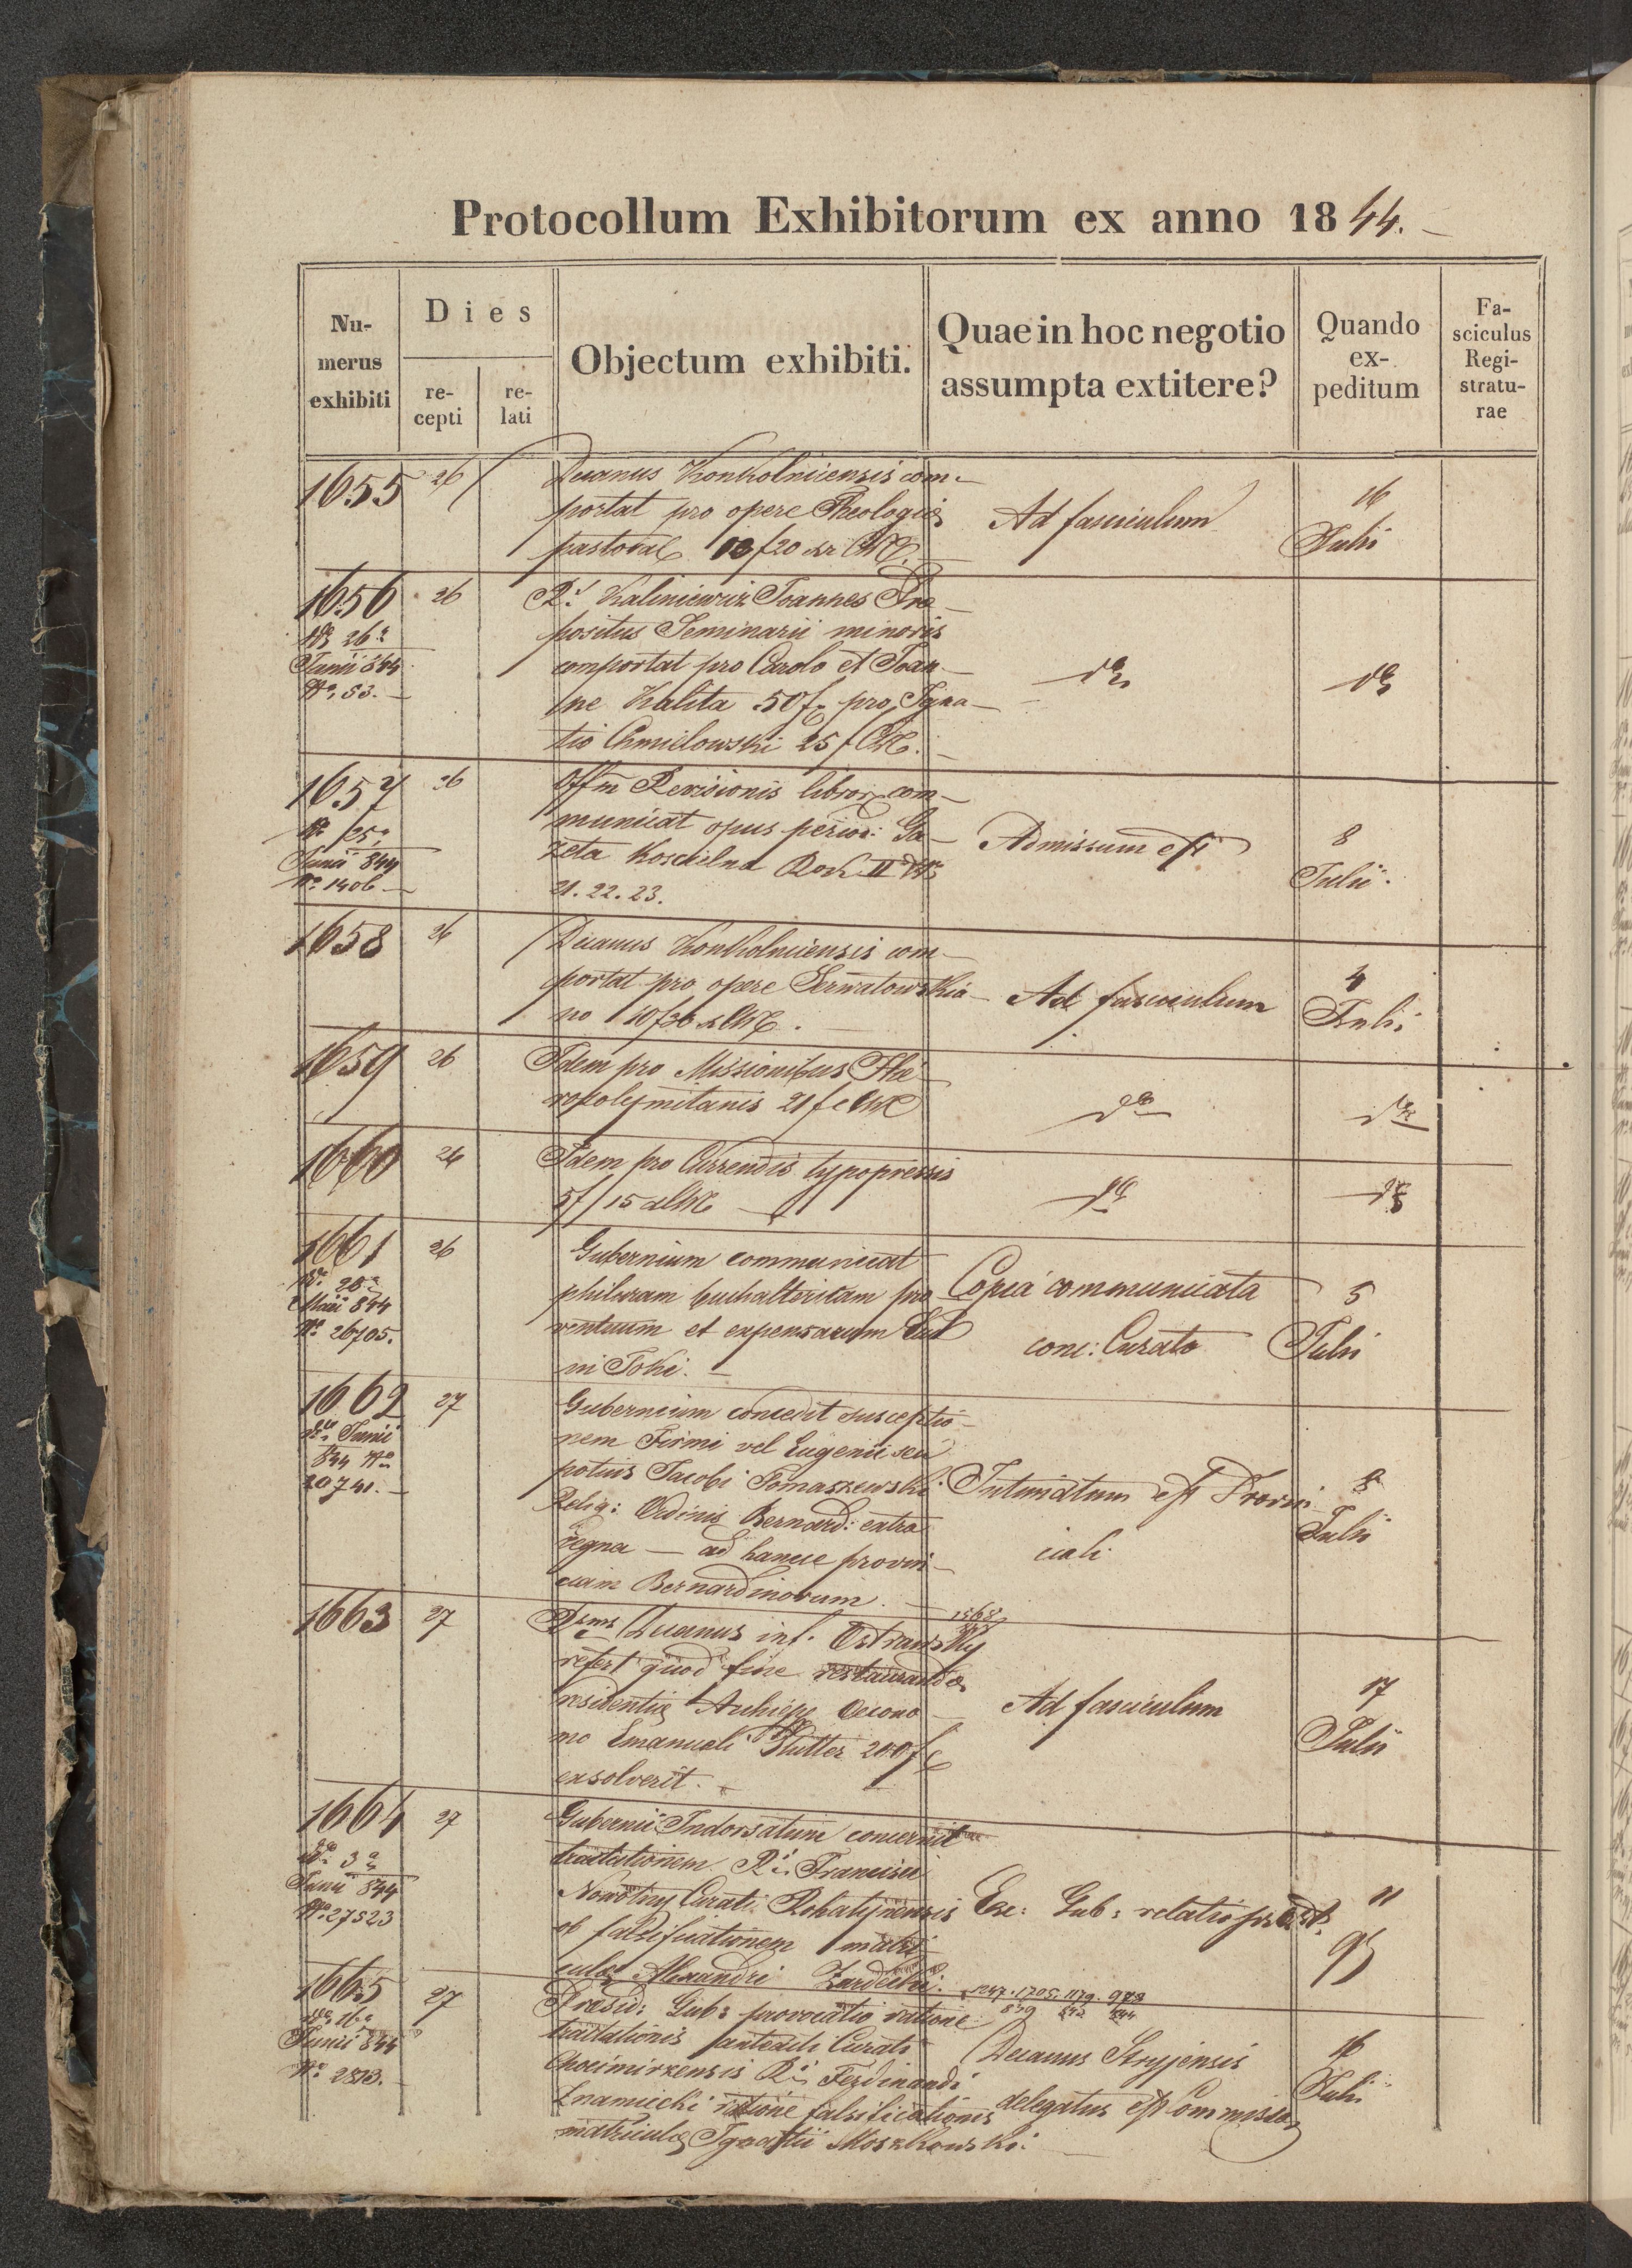 Protocollum Exhibitorum ex anno 1844.
Nu-
merus
exhibiti
Dies
re-
cepti
re-
lati
Objectum exhibiti.
Quae in hoc negotio
assumpta extitere?
Quando
ex-
peditum
Fa-
sciculus
Regi-
stratu-
rae
1655 26 Decanus Konkolniciensis com-
portat pro opere Theologiæ
pastoral 13 f 20 xr CM.
Ad fasciculum
16
Julii
1656 26
dº 26ª
Junii 844
Nº 53.
Rs. Kaliniewicz Joannes Præ-
positus Seminarii minoris
comportat pro Carolo et Joan-
ne Kalita 50 f pro Igna-
tio Chmielowski 25 f CM.
dº
dº
1657 26
dº 25ª
Junii 844
Nº 1406
Offm Revisionis libror. com-
municat opus period: Ga-
zeta Koscielna Rok II Nr.
21. 22. 23.
Admissum est
8
Julii
1658 26
Decanus Konkolniciensis com-
portat pro opere Serwatowskia-
no 10 f 30 x CM.
Ad fasciculum
4
Julii
1659 26
Idem pro Missionibus Hie-
rosolymitanis 21 f CM
dº
dº
1660 26
Idem pro Currendis typopressis
5 f 15 x CM
dº
dº
1661 26
dº 28ª
Maii 844
Nº 26705.
Gubernium communicat
philuram buchalteristam pro-
ventuum et expensarum
Toki.
Copia communicata
conc: Curato
5
Julii
1662 27
Junii
844 Nº
20741.
Gubernium concedit susceptio-
nem Firmi vel Eugenii seu
potius Jacobi Tomaszewski
Relig: Ordinis Bernard: extra
regna — ad hancce provin-
ciam Bernardinorum.
Intimatum est Provin-
ciali
8
Julii
1663 27
Rsmus Decanus inf. Ostrawsky
refert quod fine restaurandæ
residentiæ Archiepp Oecono-
mo Emanueli Hutter 200 f
exsolverit.
1568
Ad fasciculum
17
Julii
1664 27
dº 3ª
Junii 844
Nº 27523
Gubernii Indorsatum concernit
tractationem Ri Francisci
Nowotny Curati Rohatynensis
ob falsificationem matri-
culæ Alexandri
Exc: Gub: relatio præst.
11
1665 27
dº 16ª
Junii 844
Nº 2813.
Præsid: Gub: provocatio ratione
tractationis Curati
Chocimirzensis Ri Ferdinandi
Znamiecki ratione falsificationis
matriculæ Ignatii Moszkowski.
1247. 1705. 1179. 978
839
Decanus Stryjensis
delegatus est Commissar
16
Julii